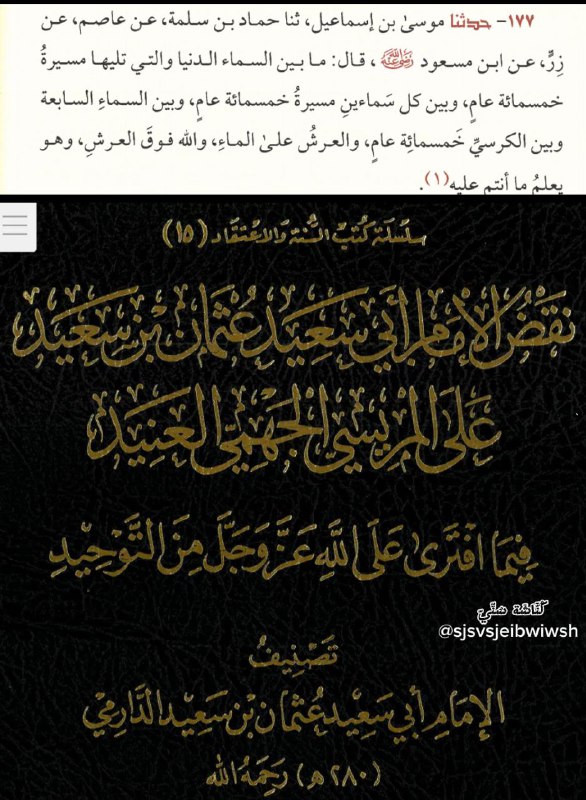 ١٧٧- حدثنا موسىٰ بن إسماعيل، ثنا حماد بن سلمة، عن عاصم، عن
زِرٍّ، عن ابن مسعود رضي الله عنه، قال: ما بين السماء الدنيا والتي تليها مسيرةُ
خمسمائة عامٍ، وبين كل سَماءينِ مسيرةُ خمسمائة عامٍ، وبين السماءِ السابعة
وبين الكرسيِّ خَمسمائِة عامٍ، والعرشُ علىٰ الماءِ، والله فوقَ العرشِ، وهو
يعلمُ ما أنتم عليه(١).
سلسلة كتب السنة والاعتقاد (١٥)
نَقْضُ الإِمَامِ أَبِي سَعِيدٍ عُثْمَانَ بْنِ سَعِيدٍ
عَلَى المَرِيسِيِّ الجَهْمِيِّ العَنِيدِ
فِيمَا افْتَرَىٰ عَلَى اللَّهِ عَزَّ وَجَلَّ مِنَ التَّوْحِيدِ
@sjsvsjeibwiwsh
تَصْنِيفُ
الإِمَامِ أَبِي سَعِيدٍ عُثْمَانَ بْنِ سَعِيدٍ الدَّارِمِيِّ
(٢٨٠ هـ) رَحِمَهُ اللَّه